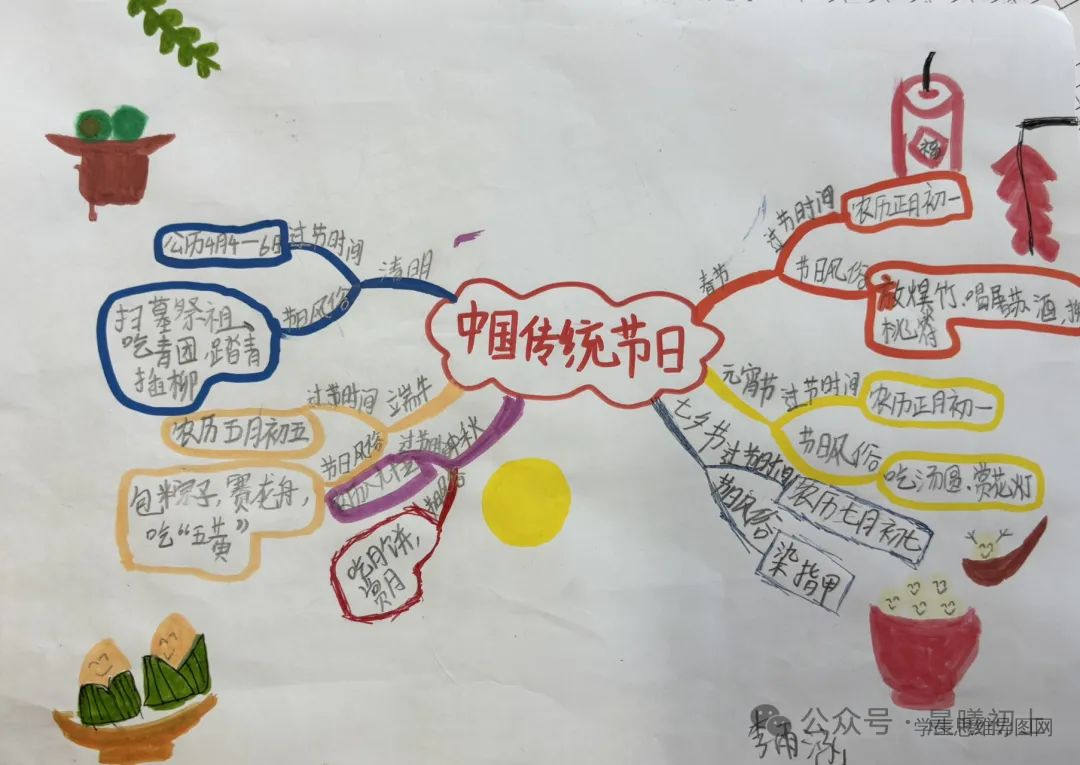 中国传统节日
春节
过节时间
农历正月初一
节日风俗
放爆竹、唱屠苏酒、
桃符
福
元宵节
过节时间
农历正月初一
节日风俗
吃汤圆、赏花灯
七夕节
过节时间
农历七月初七
节日风俗
染指甲
中秋
过节时间
节日风俗
吃月饼,
赏月
端午
过节时间
农历五月初五
节日风俗
包粽子,赛龙舟,
吃“五黄”
清明
过节时间
公历4月4—6日
节日风俗
扫墓祭祖、
吃青团、踏青
插柳
公众号·星曦初上
学生思维导图网